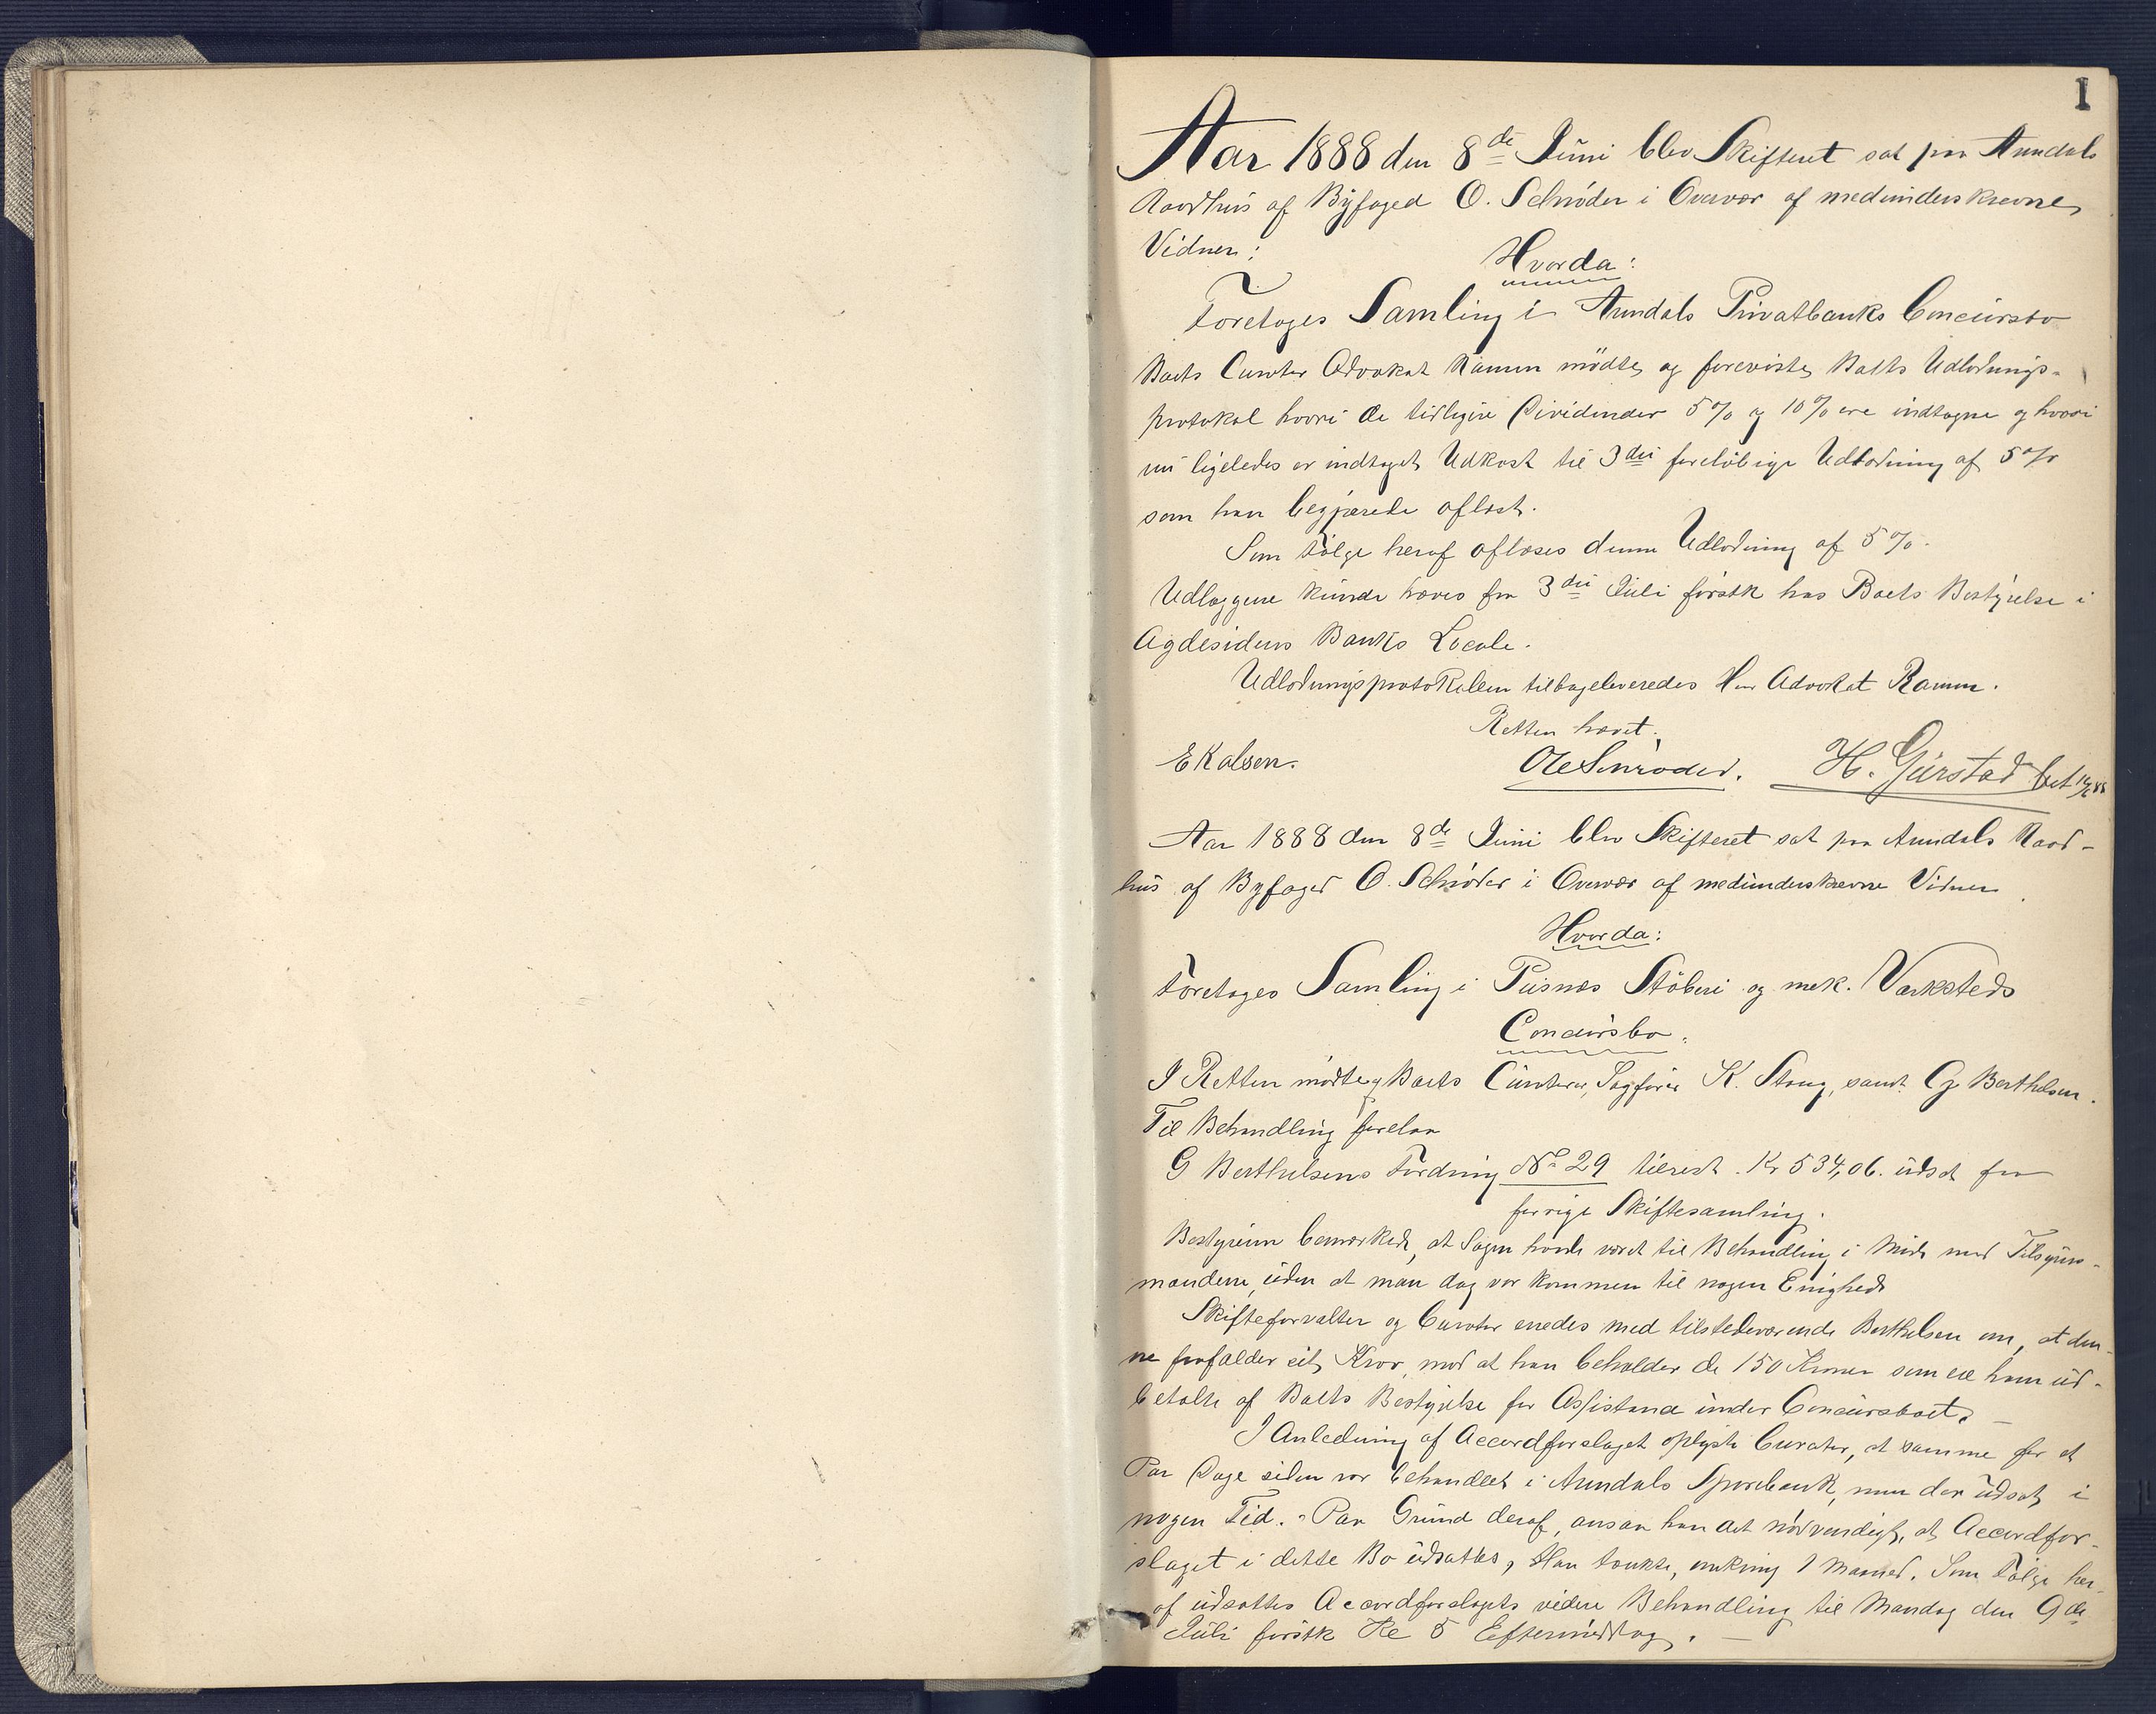 1
Aar 1888 den 8de Juni blev Skifteret sat paa Arendals
Raadhus af Byfoged O. Schrøder i Overvær af medunderskrevne
Vidner:
Hvorda:
Foretoges Samling i Arendals Privatbanks Concursbo
Boets Curator Advokat Ramm mødte og foreviste Boets Udlodnings-
protokol hvori de tidligere Dividender 5% og 10% ere indtagne og hvori
nu ligeledes er indtaget Udkast til 3die foreløbige Udlodning af 5%
som han begjærede aflæst.
Som Følge heraf aflæses denne Udlodning af 5%.
Udlæggene kunde hæves fra 3die Juli førstk hos Boets Bestyrelse i
Agdesidens Banks Locale.
Udlodningsprotokollen tilbageleveredes Hr Advokat Ramm.
Retten hævet.
E Kalsen. Ole Schrøder. H. Gürstad
Aar 1888 den 8de Juni blev Skifteret sat paa Arendals Raad-
hus af Byfoged O. Schrøder i Overvær af medunderskrevne Vidner
Hvorda:
Foretoges Samling i Pusnes Støberi og mek. Værksteds
Concursbo.
I Retten mødte Boets Curator, Sagfører K. Stang, samt G. Berthelsen.
Til Behandling forelaa
G Berthelsens Fordring No 29 tilrest. Kr 534,06. udsat fra
forrige Skiftesamling.
Bestyreren bemærkede, at Sagen havde været til Behandling i Møde med Tilsyns-
mændene, uden at man dog var kommen til nogen Enighed
Skifteforvalter og Curator enedes med tilstedeværende Berthelsen om, at den-
ne frafalder sit Krav, mod at han beholder de 150 Kroner som ere ham ud-
betalte af Boets Bestyrelse for Assistance under Concursboet.
I Anledning af Accordforslaget oplyste Curator, at samme for et
Par Dage siden var behandlet i Arendals Sparebank, men der udsat i
nogen Tid. Paa Grund deraf, ansaa han det nødvendigt, at Accordfor-
slaget i dette Bo udsattes, Han tænkte, omkring 1 Maaned. Som Følge her-
af udsattes Accordforslagets videre Behandling til Mandag den 9de
Juli førstk Kl 5 Eftermiddag.